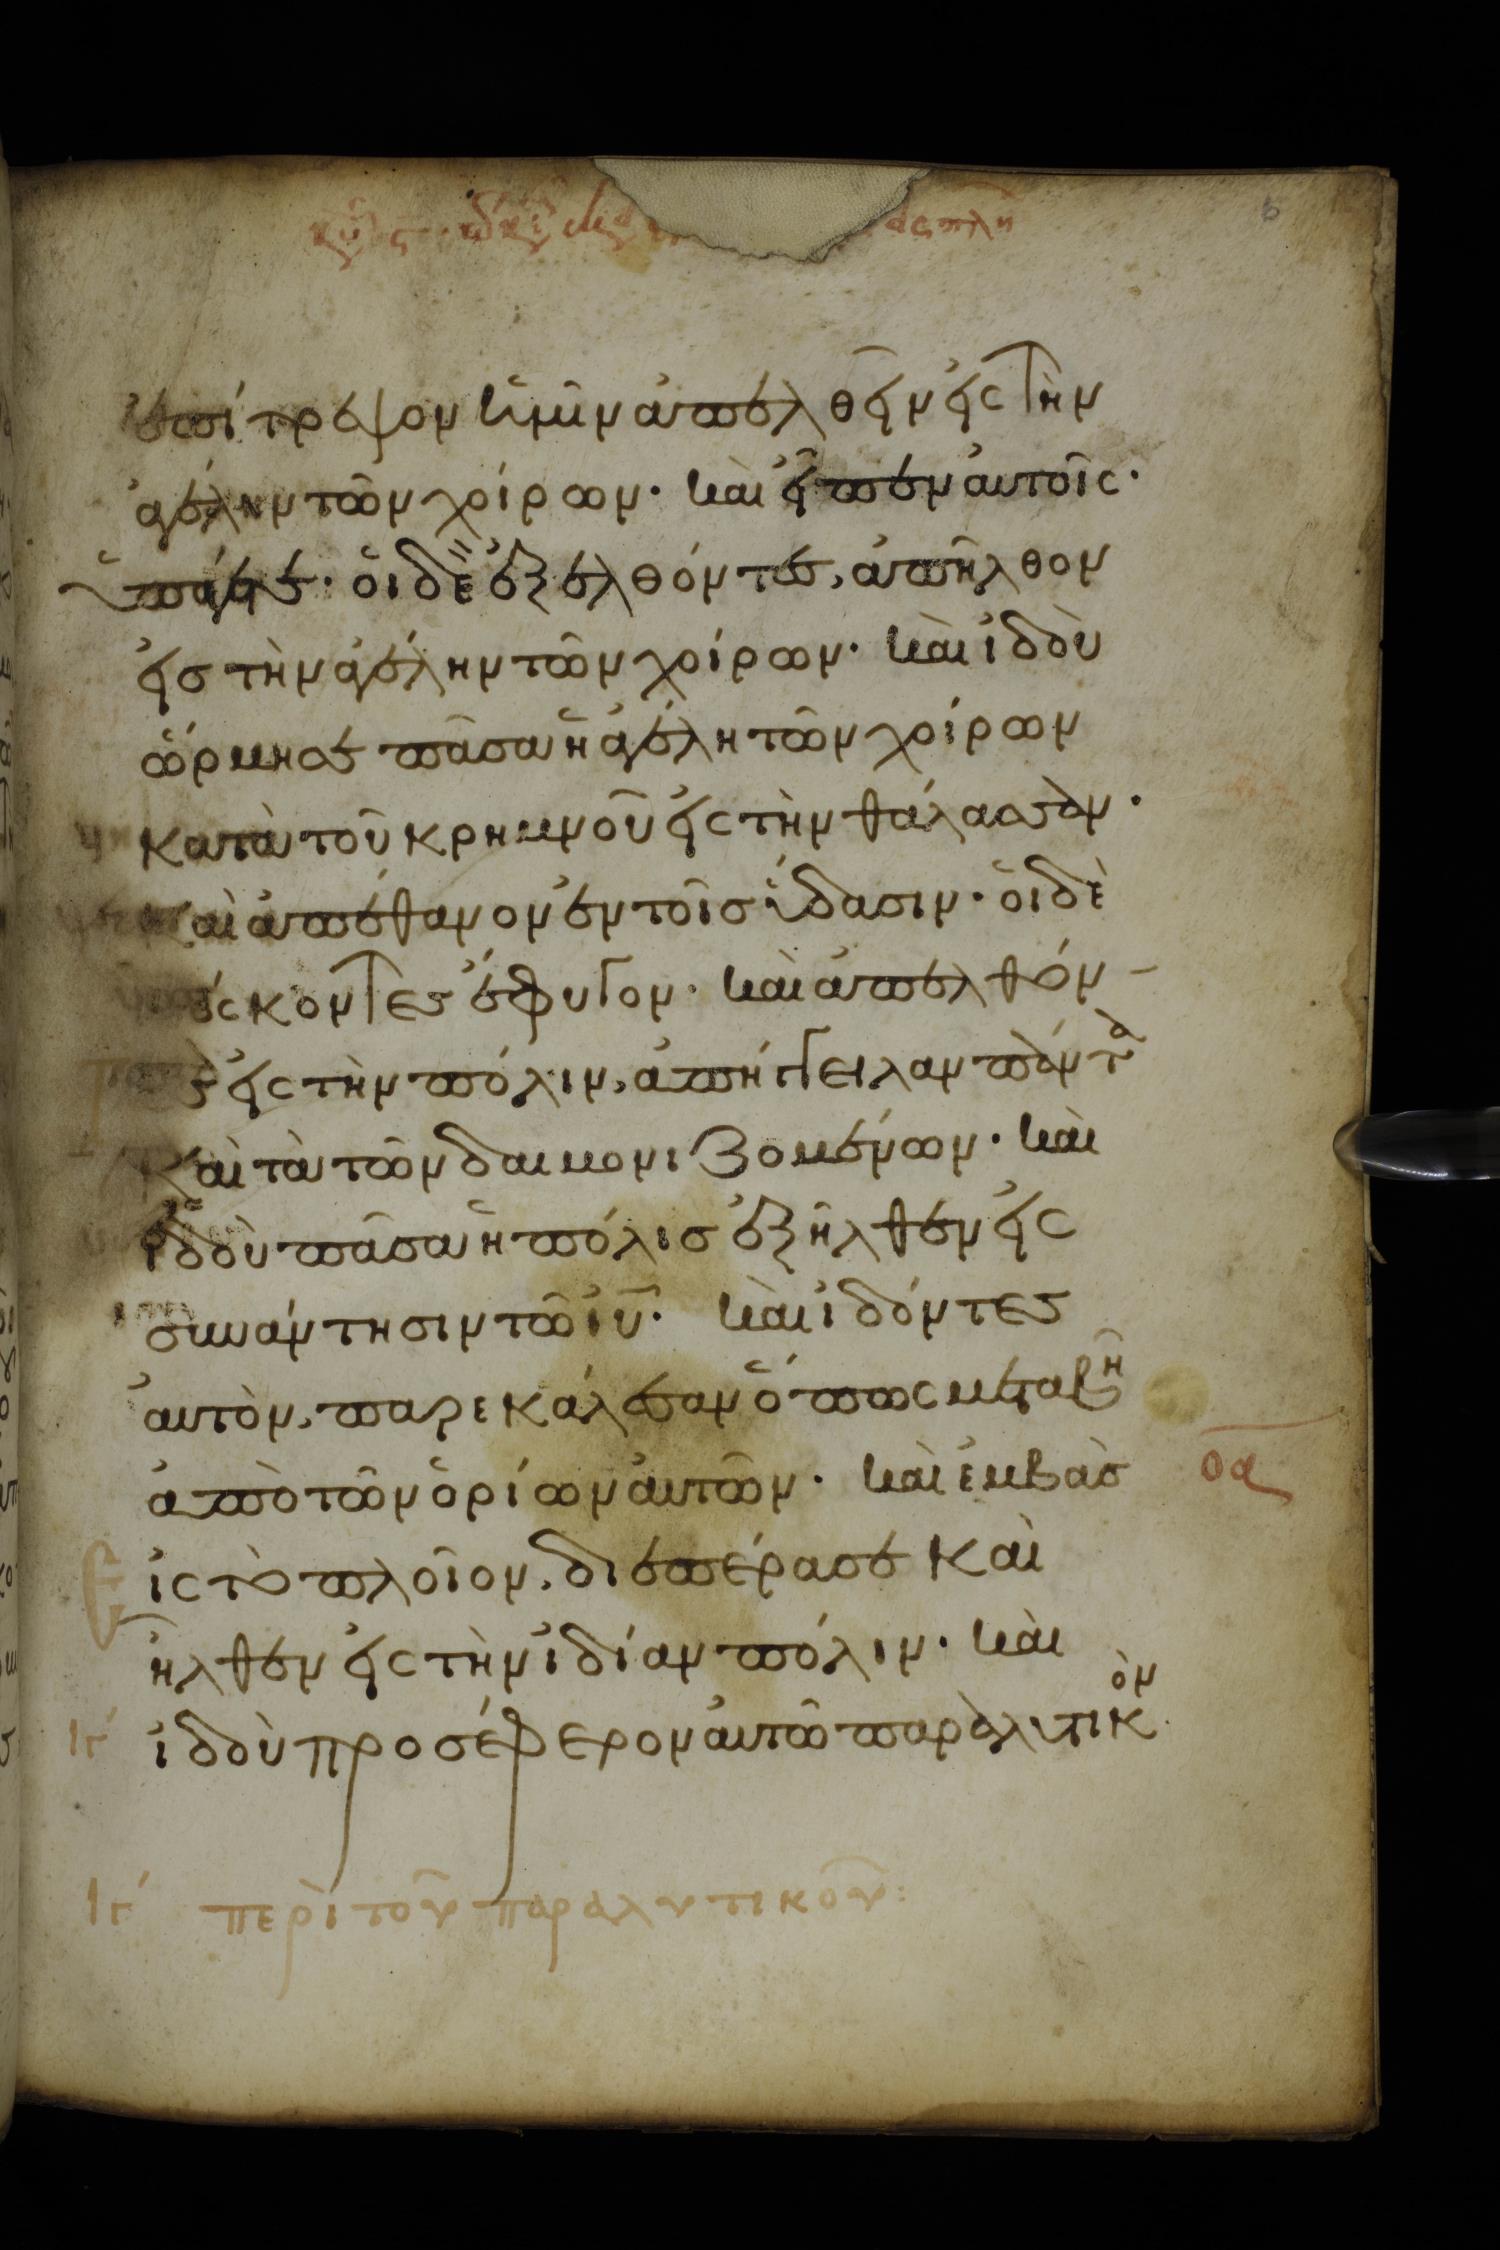 ἐπίτρεψον ἡμῖν ἀπελθεῖν εἰς τὴν
ἀγέλην τῶν χοίρων· καὶ εἶπεν αὐτοῖς·
ὑπάγετε· οἱ δὲ ἐξελθόντες, ἀπῆλθον
εἰς τὴν ἀγέλην τῶν χοίρων· καὶ ἰδοὺ
ὥρμησε πᾶσα ἡ ἀγέλη τῶν χοίρων
κατὰ τοῦ κρημνοῦ εἰς τὴν θάλασσαν·
καὶ ἀπέθανον ἐν τοῖς ὕδασιν· οἱ δὲ
βόσκοντες ἔφυγον· καὶ ἀπελθόν
τες εἰς τὴν πόλιν, ἀπήγγειλαν πάντα
καὶ τὰ τῶν δαιμονιζομένων· καὶ
ἰδοὺ πᾶσα ἡ πόλις ἐξῆλθεν εἰς
συνάντησιν τῶ ιυ̅· καὶ ἰδόντες
αὐτὸν, παρεκάλεσαν ὅπως μεταβῆ
ἀπὸ τῶν ὁρίων αὐτῶν· καὶ ἐμβὰς
οα
Εἰς τὸ πλοῖον, διεπέρασε καὶ
ἦλθεν εἰς τὴν ἰδίαν πόλιν· καὶ
ιγ´ ἰδοὺ προσέφερον αὐτῶ παραλυτικὸν
ιγ´ περὶ τοῦ παραλυτικοῦ: